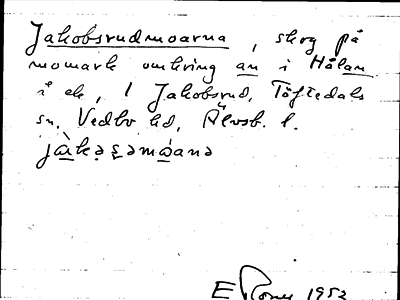 Jakobsrudmoarna, skog på
momark omkring an i Hålan
å ek, 1 Jakobsrud, Töftedals
sn, Vedbo hd, Älvsb. l.
E 1952